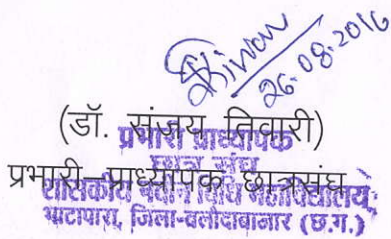 26.08.2016
(डॉ. संजय तिवारी)
प्रभारी प्राध्यापक
छात्र संघ
प्रभारी–प्राध्यापक छात्रसंघ
शासकीय महाविद्यालय,
भाटापारा, जिला-बलौदाबाजार (छ.ग.)